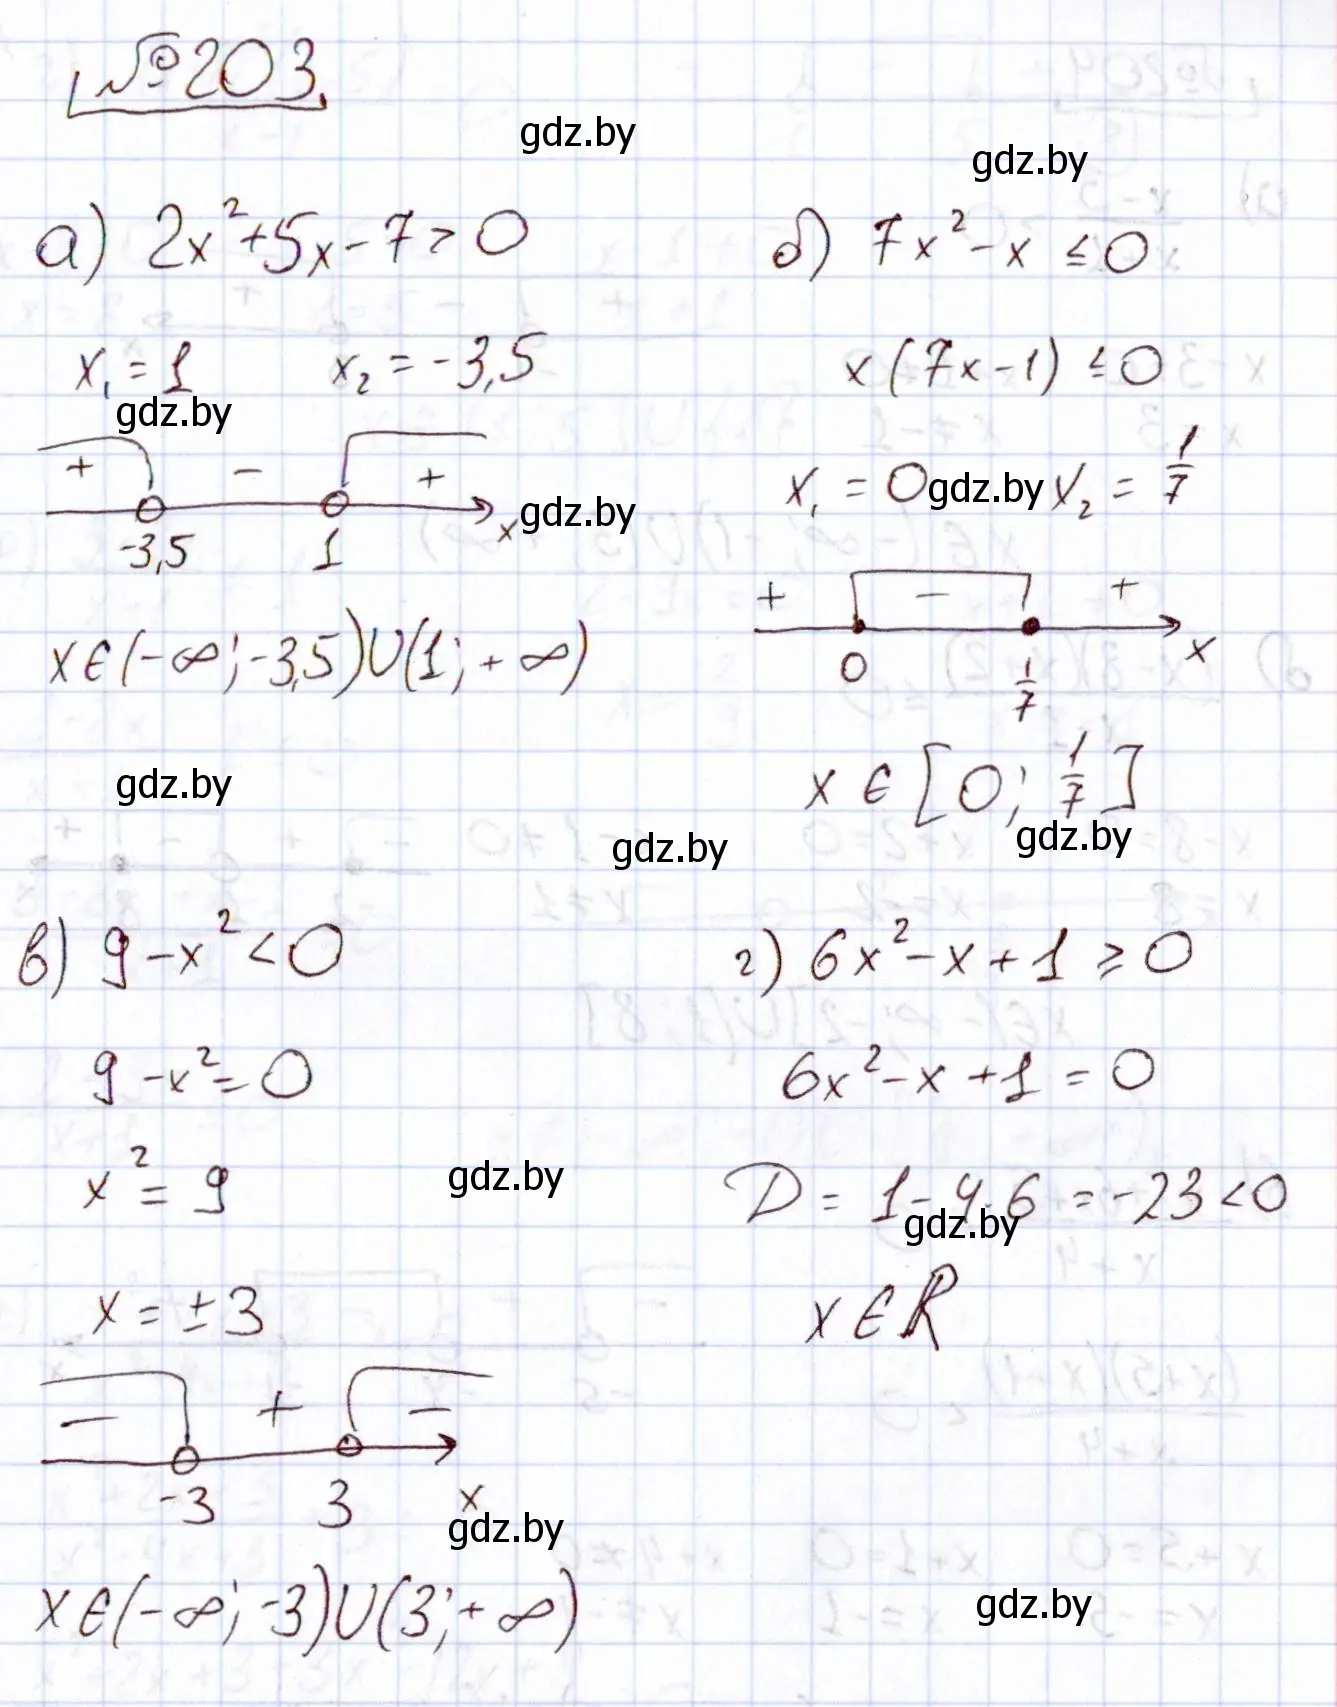 № 203
gdz.by
gdz.by
а) 2x² + 5x - 7 > 0
x₁ = 1 x₂ = -3,5
gdz.by
+ - +
-3,5 1 x
gdz.by
x ∈ (-∞; -3,5) ∪ (1; +∞)
gdz.by
б) 7x² - x ≤ 0
x(7x - 1) ≤ 0
x₁ = 0 gdz.by x₂ = 1/7
+ - +
0 1/7 x
x ∈ [0; 1/7]
gdz.by
gdz.by
в) 9 - x² < 0
9 - x² = 0
x² = 9
gdz.by
x = ±3
- + -
-3 3 x
gdz.by
x ∈ (-∞; -3) ∪ (3; +∞)
г) 6x² - x + 1 ≥ 0
6x² - x + 1 = 0
D = 1 - 4·6 = -23 < 0
gdz.by
x ∈ R
gdz.by